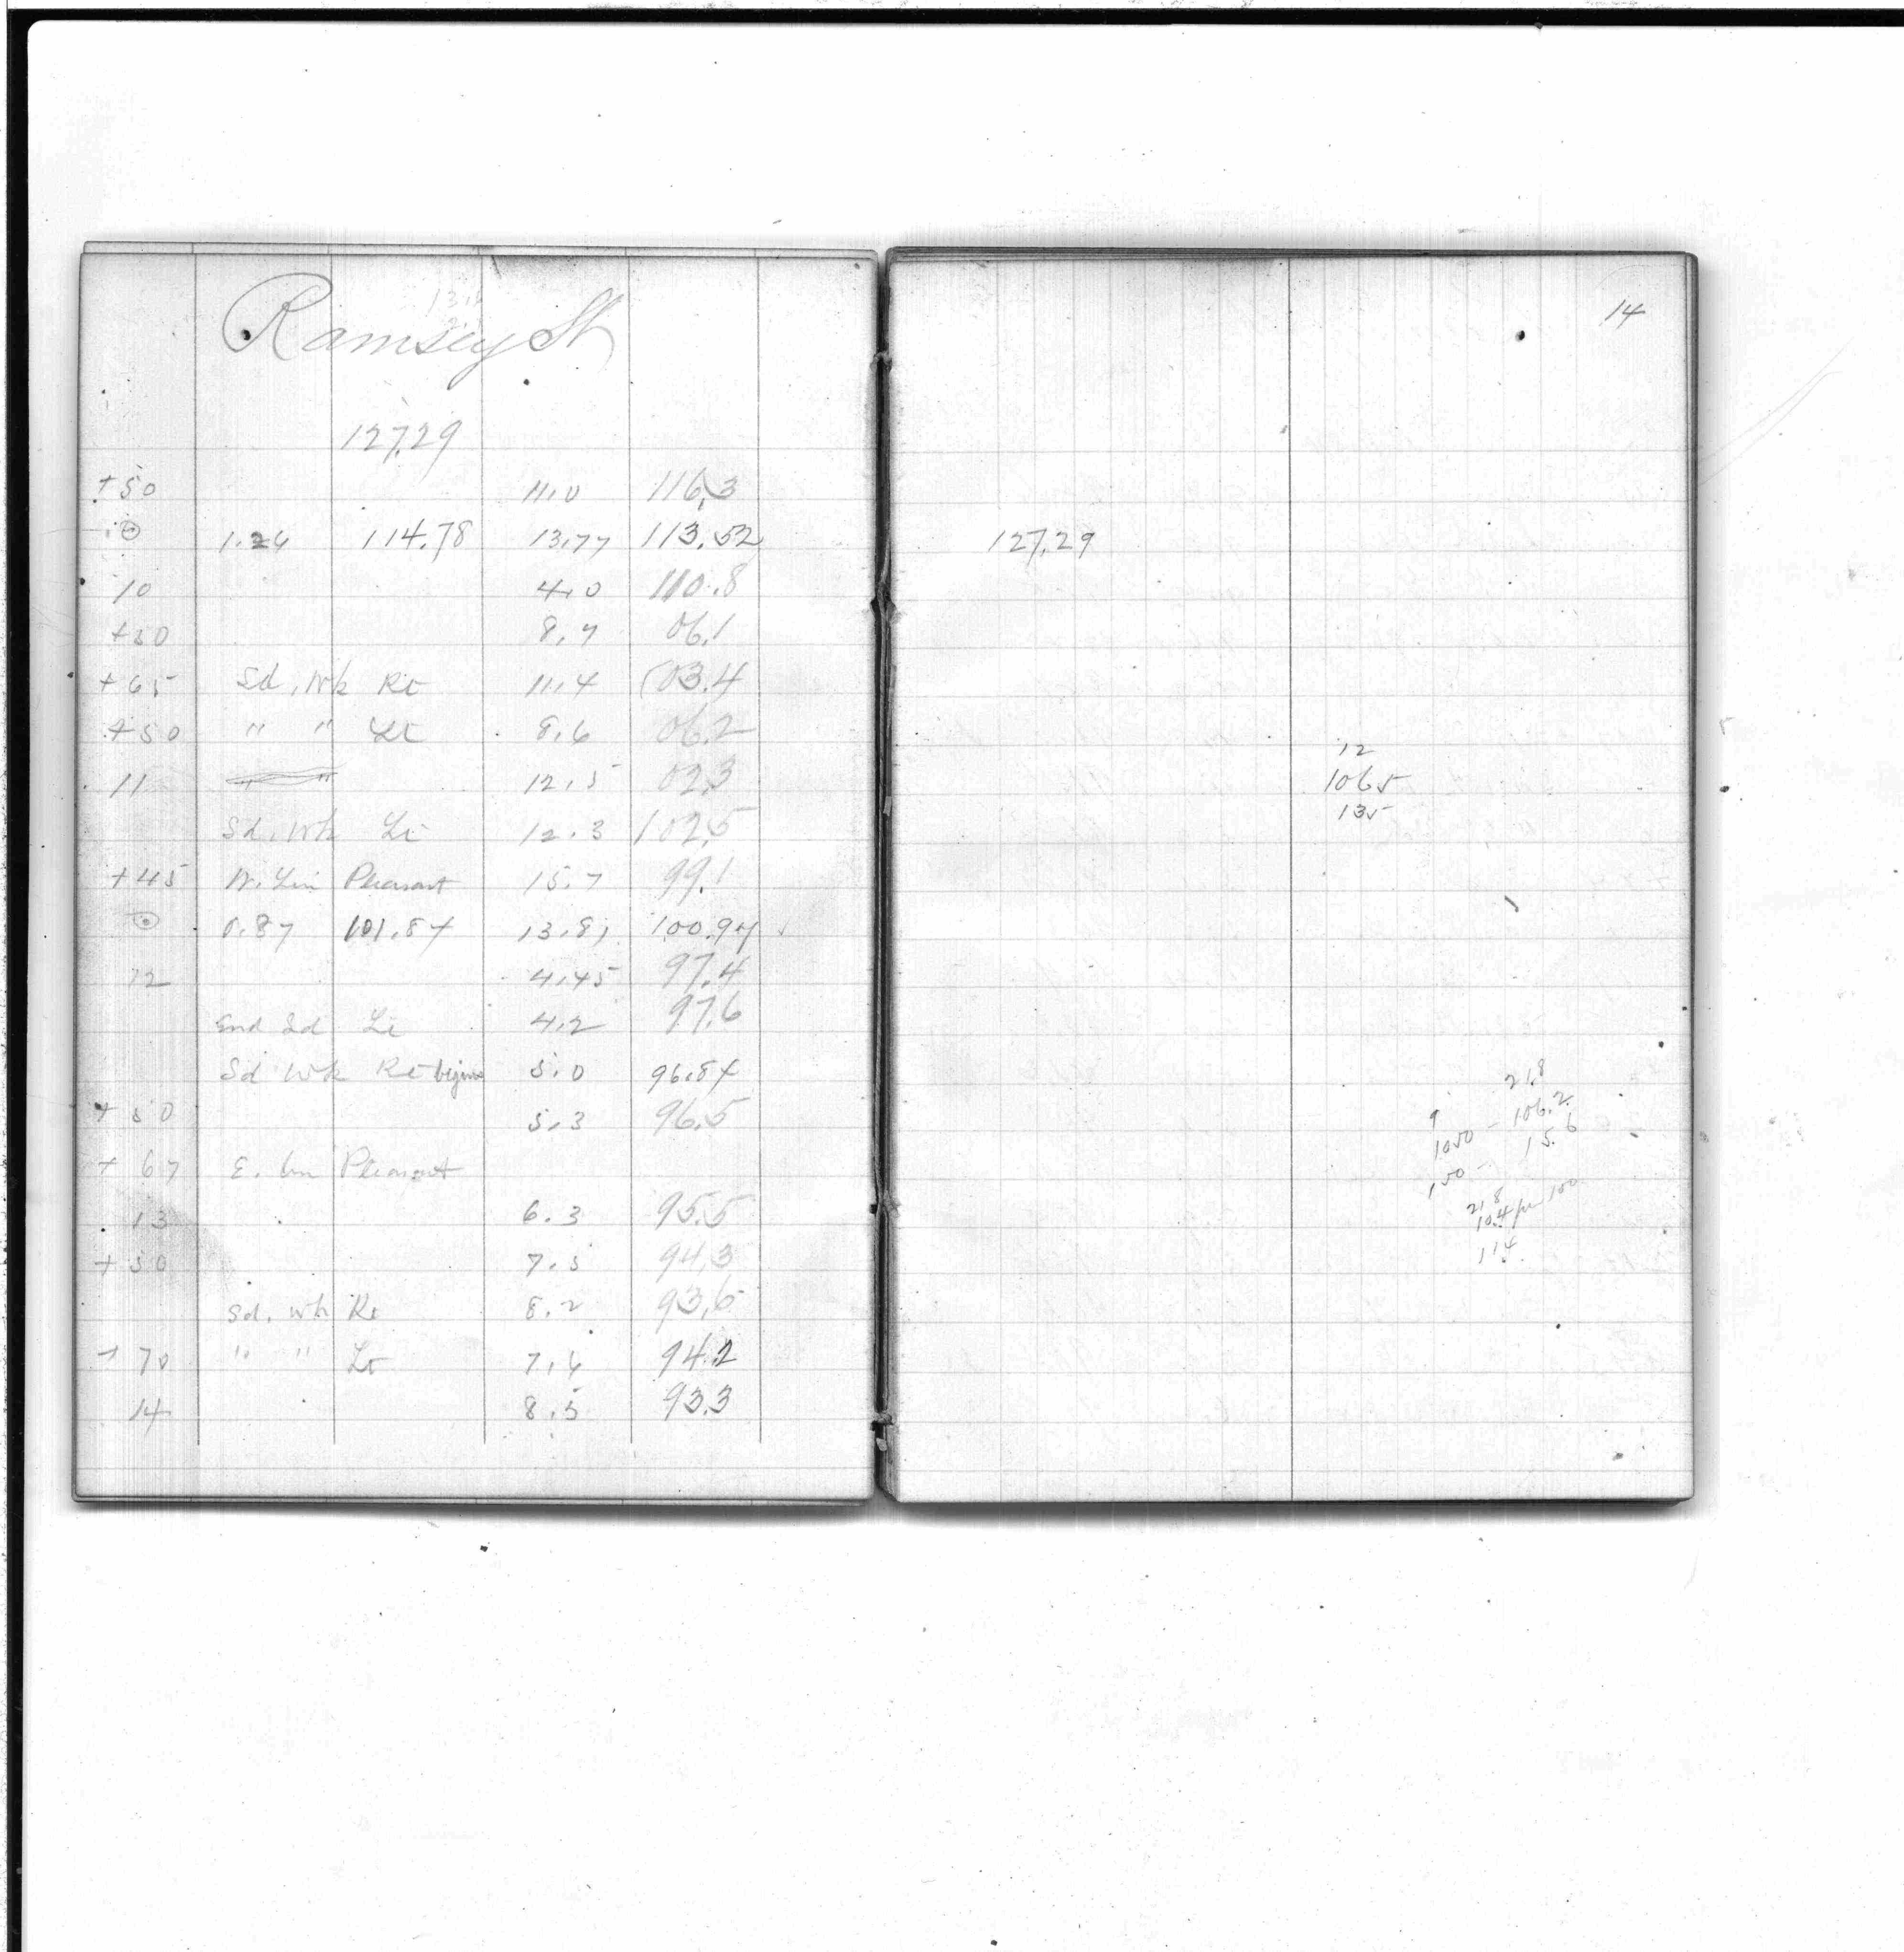 Ramsey St
127.29
+50 11.0 116.3
⊙ 1.26 114.78 13.77 113.52
10 4.0 110.8
+50 8.7 06.1
+65 Sd. Wk Rt 11.4 103.4
+50 " " Lt 8.6 06.2
11 12.5 02.3
Sd. Wk Lt 12.3 102.5
+45 W. Lin Pleasant 15.7 99.1
⊙ 0.87 101.84 13.81 100.97
12 4.45 97.4
End Sd Lt 4.2 97.6
Sd Wk Rt begins 5.0 96.84
+50 5.3 96.5
+67 E. Lin Pleasant
13 6.3 95.5
+50 7.5 94.3
Sd. Wk Rt 8.2 93.6
+70 " " Lt 7.6 94.2
14 8.5 93.3
14
127.29
12
1065
135
21.8
9
1050 - 106.2
100 - 15.6
21.8
10.4 per 100
114